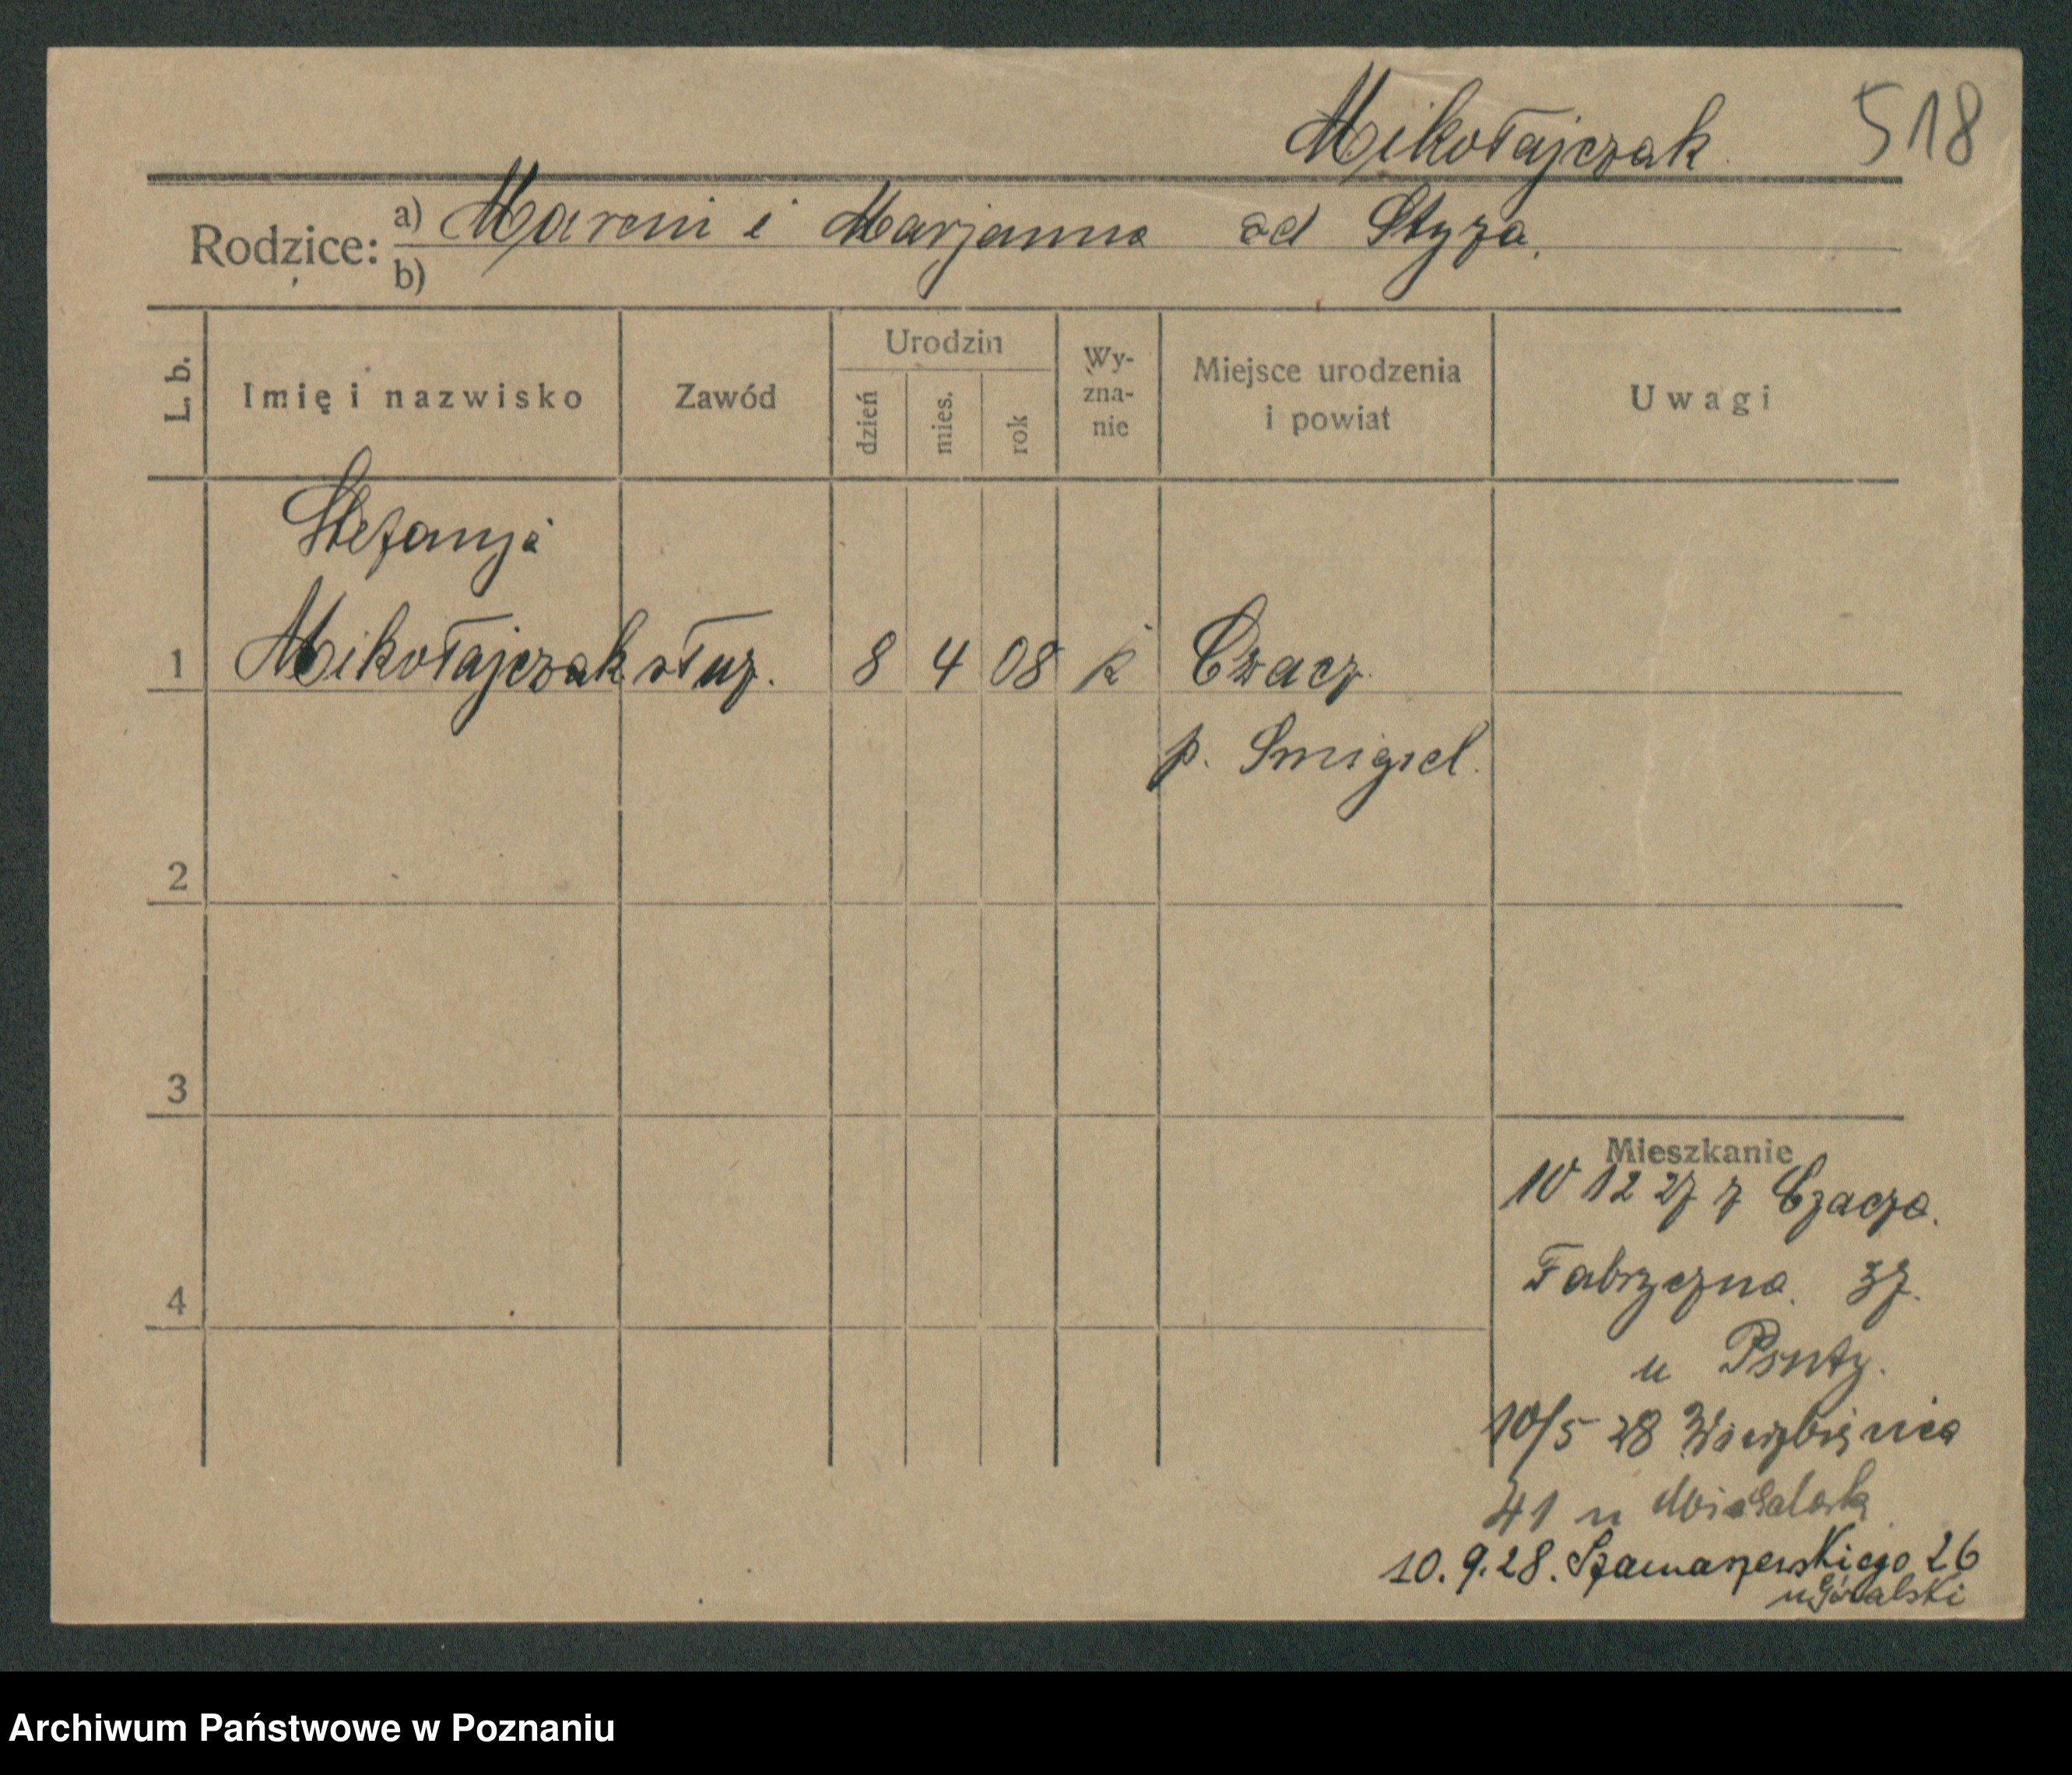 Mikołajczak 518
Rodzice: a) Marcin i Marjanna od Styza.
b)
L. b. Imię i nazwisko Zawód Urodzin dzień mies. rok Wy-zna-nie Miejsce urodzenia i powiat Uwagi
Stefanja
1 Mikołajczak służ. 8 4 08 k Czacz
p. Smigiel.
2
3
Mieszkanie
10 12 27 z Czacza.
4 Fabryczna 37.
u
10/5 28 Wierzbięcica
41 u
10.9.28. Szamarzewskiego 26
u Góralski
Archiwum Państwowe w Poznaniu